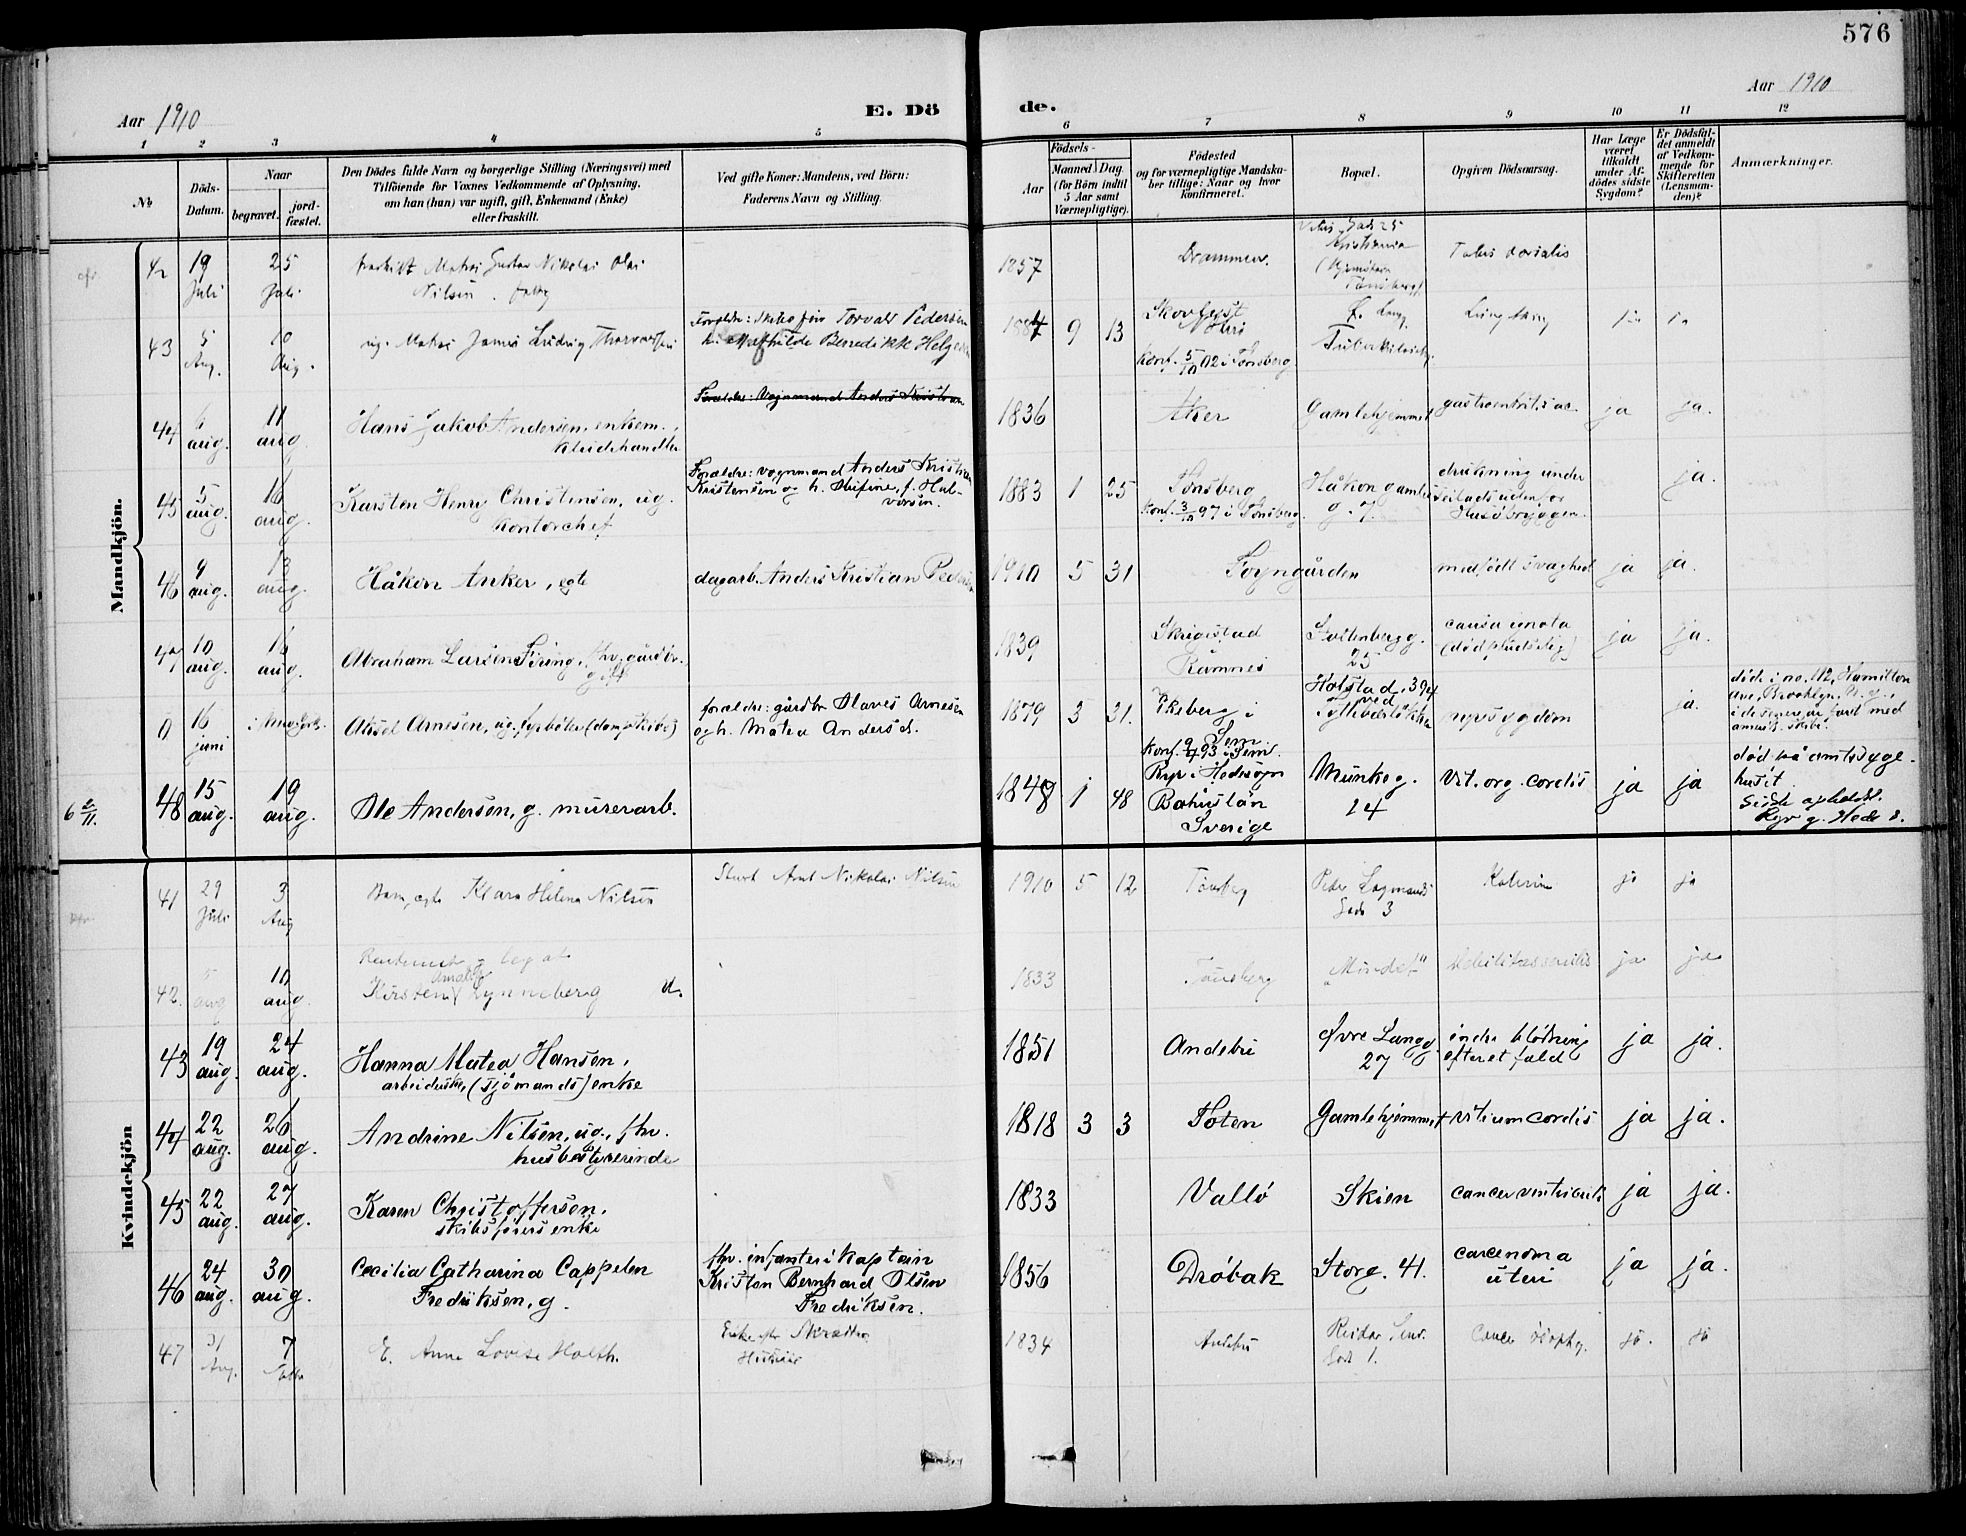 576
Aar 1910
E. Dö
de.
Aar 1910
1 2 3 4 5 6 7 8 9 10 11 12
No
Döds-
Datum.
Naar
begravet.
jord-
fæstet.
Den Dödes fulde Navn og borgerlige Stilling (Næringsvei) med
Tilföiende for Voxnes Vedkommende af Oplysning,
om han (hun) var ugift, gift, Enkemand (Enke)
eller fraskilt.
Ved gifte Koner: Mandens, ved Börn:
Faderens Navn og Stilling.
Födsels-
Aar
Maaned
Dag.
(for Börn indtil
5 Aar samt
Værnepligtige).
Födested
og for værnepligtige Mandska-
ber tillige: Naar og hvor
konfirmeret.
Bopæl.
Opgiven Dödsaarsag.
Har Læge
været
tilkaldt
under Af-
dödes sidste
Sygdom?
Er Dödsfal-
det anmeldt
af Vedkom-
mende for
Skifteretten
(Lensman-
den)?
Anmærkninger.
Mandkjön.
42
19
Juli
25
Juli
fraskilt Matros Gustav Nikolai Olai
Nilsen
1857
Drammen.
Gade 25
Kristiania
Tabes dorsalis
43
5
Aug.
10
Aug.
ug. Matros James Ludvig Thorvaldsen
Forældre: Torvald Pedersen
Mathilde Benedikk Helgesen
1884 9 13
Konf. 5/10 02 i Tønsberg
44
6
aug.
11
aug.
Hans Jakob Andersen, enkem.,
kleidehandler
Forældre: Vognmand Anders Kristian
1836
Aker
Gamlehjemmet
gastroenterit. ac.
ja
ja.
45
5
aug.
16
aug.
Karsten Henry Christensen, ug.
kontorchef
Forældre: vognmand Anders Kristian
Kristensen og h. Josefine, f. Hal-
vorsen.
1883 1 25
Tønsberg
Konf. 3/10 97 i Tønsberg.
Håkon gamles
g. 7.
drukning under
seilads udenfor
Husøbryggen.
ja.
46
9
aug.
13
aug.
Håkon Anker, egte
dagarb. Anders Kristian Pedersen
1910 5 31
Sogngården
medfødt svaghed
ja
ja.
47
10
aug.
16
aug.
Abraham Larsen Firing, fhv. gårdbr.
gift
1839
Skrigestad
Ramnes
Stoltenbergg.
25
causa ignota
(død pludselig)
ja
ja.
0
16
juni
i New York.
Aksel Arnesen, ug. fyrbøter (dampskibs)
forældre: gårdbr Olaves Arnesen
og h. Matea Andersd.
1879 3 31.
Ekeberg i
Sem.
Konf. 9/4 93 i Sem.
nyresygdom
ja.
døde i no. 112, Hamilton
Ave, Brooklyn, N. Y.,
i de senere år fart med
amerik. skibe.
6 2/11.
48
15
aug.
19
aug.
Ole Andersen, g. murerarb.
1848 1 48
Ryr i Hedesogn
Bohuslän
Sverige
Munkeg.
14
Vit. org. cordis
ja
ja
død på amtssyge-
huset.
Sidste opholdst.
Ryr g. Hede s.
Kvindekjön
41
29
Juli
3
Aug
Barn, egte Klara Helena Nilsen
Arnt Nikolai Nilsen
1910 5 12
Tønsberg
Peder Lagmands
Gade 3
Kolerine
ja
ja
42.
5
aug
10
aug.
Kirstene Amalie Lynneberg d.
1833
Tønsberg
"Mindet"
debilitas senilis
ja
ja
43
19
aug.
24
aug.
Hanna Matea Hansen,
arbeiderske, (sjømands) enke
1851
Andebu
Øvre Langg.
27
indre blødning
efter et fald
ja
ja.
44
22
aug.
26
aug.
Andrine Nilsen, ug., fhv.
husbestyrerinde
1818 3 3
Toten
Gamlehjemmet
vitium cordis
ja
ja.
45
22
aug.
27
aug.
Karen Christoffersen,
skibsførers enke
1833
Vallø
Skien
cancer ventriculi
ja
ja.
46
24
aug.
30
aug.
Cecilia Catharina Cappelen
Fredriksen, g.
fhv. infanterikaptein
Kristen Bernhard Olsen
Fredriksen.
1856
Drøbak
Storg. 41.
carcenoma
uteri
ja
ja.
47
31
Aug.
7
Septbr
E. Anne Lovise Holth.
Enke efter Skrædder
1834
Andebu
Reidar Send.
Gad 1.
Cancer øsophg.
ja.
ja